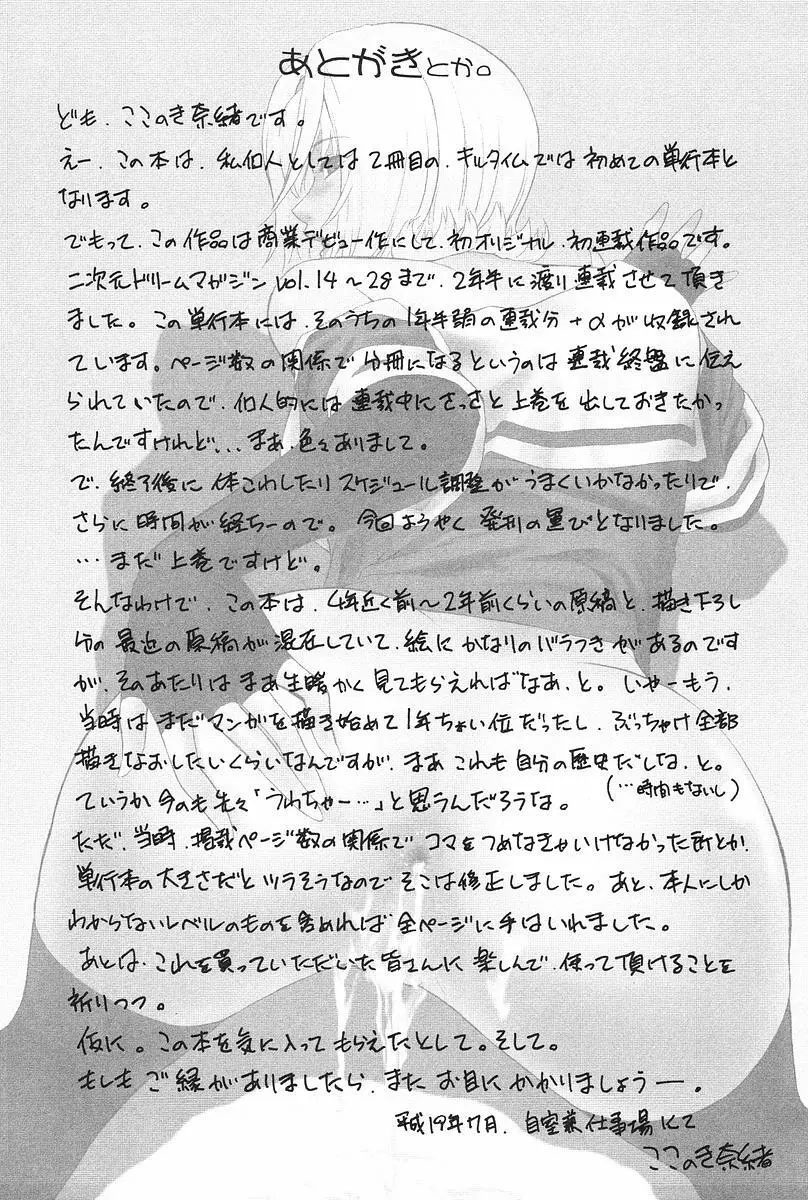 あとがきとか。
ども、ここのき奈緒です。
えー、この本は、私個人としては2冊目の、キルタイムでは初めての単行本と
なります。
でもって、この作品は商業デビュー作にして、初オリジナル、初連載作品です。
二次元ドリームマガジン vol.14〜28まで、2年半に渡り連載させて頂き
ました。この単行本には、そのうちの1年半弱の連載分+αが収録され
ています。ページ数の関係で分冊になるというのは連載終盤に伝え
られていたので、個人的には連載中にさっさと上巻を出しておきたかっ
たんですけれど...まあ、色々ありまして。
で、終了後に体こわしたりスケジュール調整がうまくいかなかったりで、
さらに時間が経ちーので。今回ようやく発刊の運びとなりました。
…まだ上巻ですけど。
そんなわけで、この本は、4年近く前〜2年前くらいの原稿と、描き下ろし
分の最近の原稿が混在していて、絵にかなりのバラつきがあるのです
が、そのあたりはまあ生暖かく見てもらえればなあ、と。いやーもう、
当時はまだマンガを描き始めて1年ちょい位だったし、ぶっちゃけ全部
描きなおしたいくらいなんですが、まあこれも自分の歴史だしな、と。
(…時間もないし)
ていうか今のも先々「うわちゃー…」と思うんだろうな。
ただ、当時、掲載ページ数の関係でコマをつめなきゃいけなかった所とか、
単行本の大きさだとツラそうなのでそこは修正しました。あと、本人にしか
わからないレベルのものを含めれば全ページに手はいれました。
あとは、これを買っていただいた皆さんに楽しんで、使って頂けることを
祈りつつ。
仮に。この本を気に入ってもらえたとして。そして。
もしもご縁がありましたら、またお目にかかりましょうー。
平成19年7月、自室兼仕事場にて
ここのき奈緒